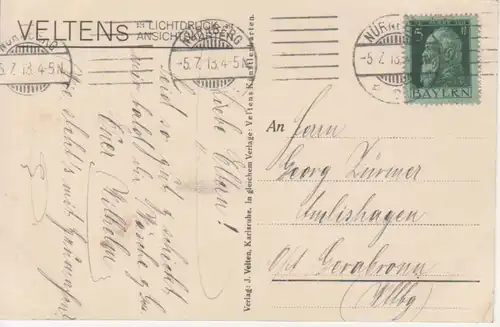 VELTENS LICHTDRUCK
ANSICHTSKARTEN
NÜRNBERG
-5.7.13.4-5N.
NÜRNBERG
-5.7.13.4-5N.
NÜRNBERG
-5.7.13
5
BAYERN
Liebe Eltern!
Seid so gut & schickt
mir bald die Wäsche
Euer Wilhelm
Wie steht's mit
Verlag: J. Velten, Karlsruhe. In gleichem Verlage: Veltens Künstlerkarten.
An Herrn
Georg Dürmer
Amlishagen
OA Gerabronn
(Wttbg)